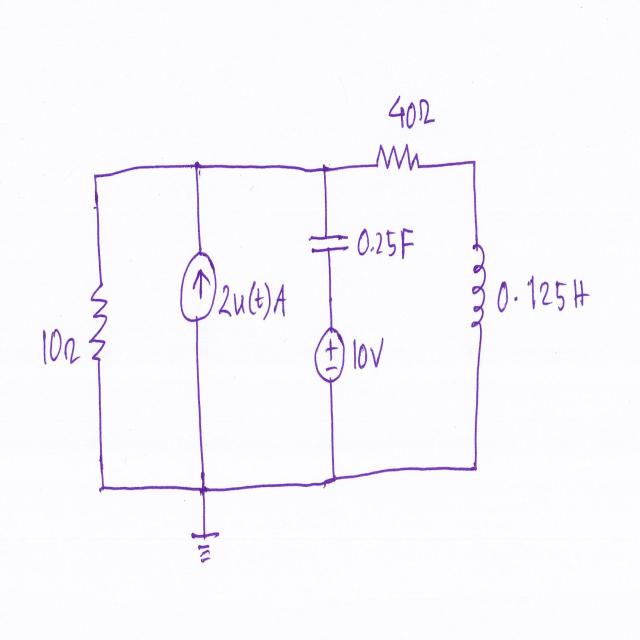 40Ω
0.25F
2u(t)A
0.125H
10Ω
+
-
10V